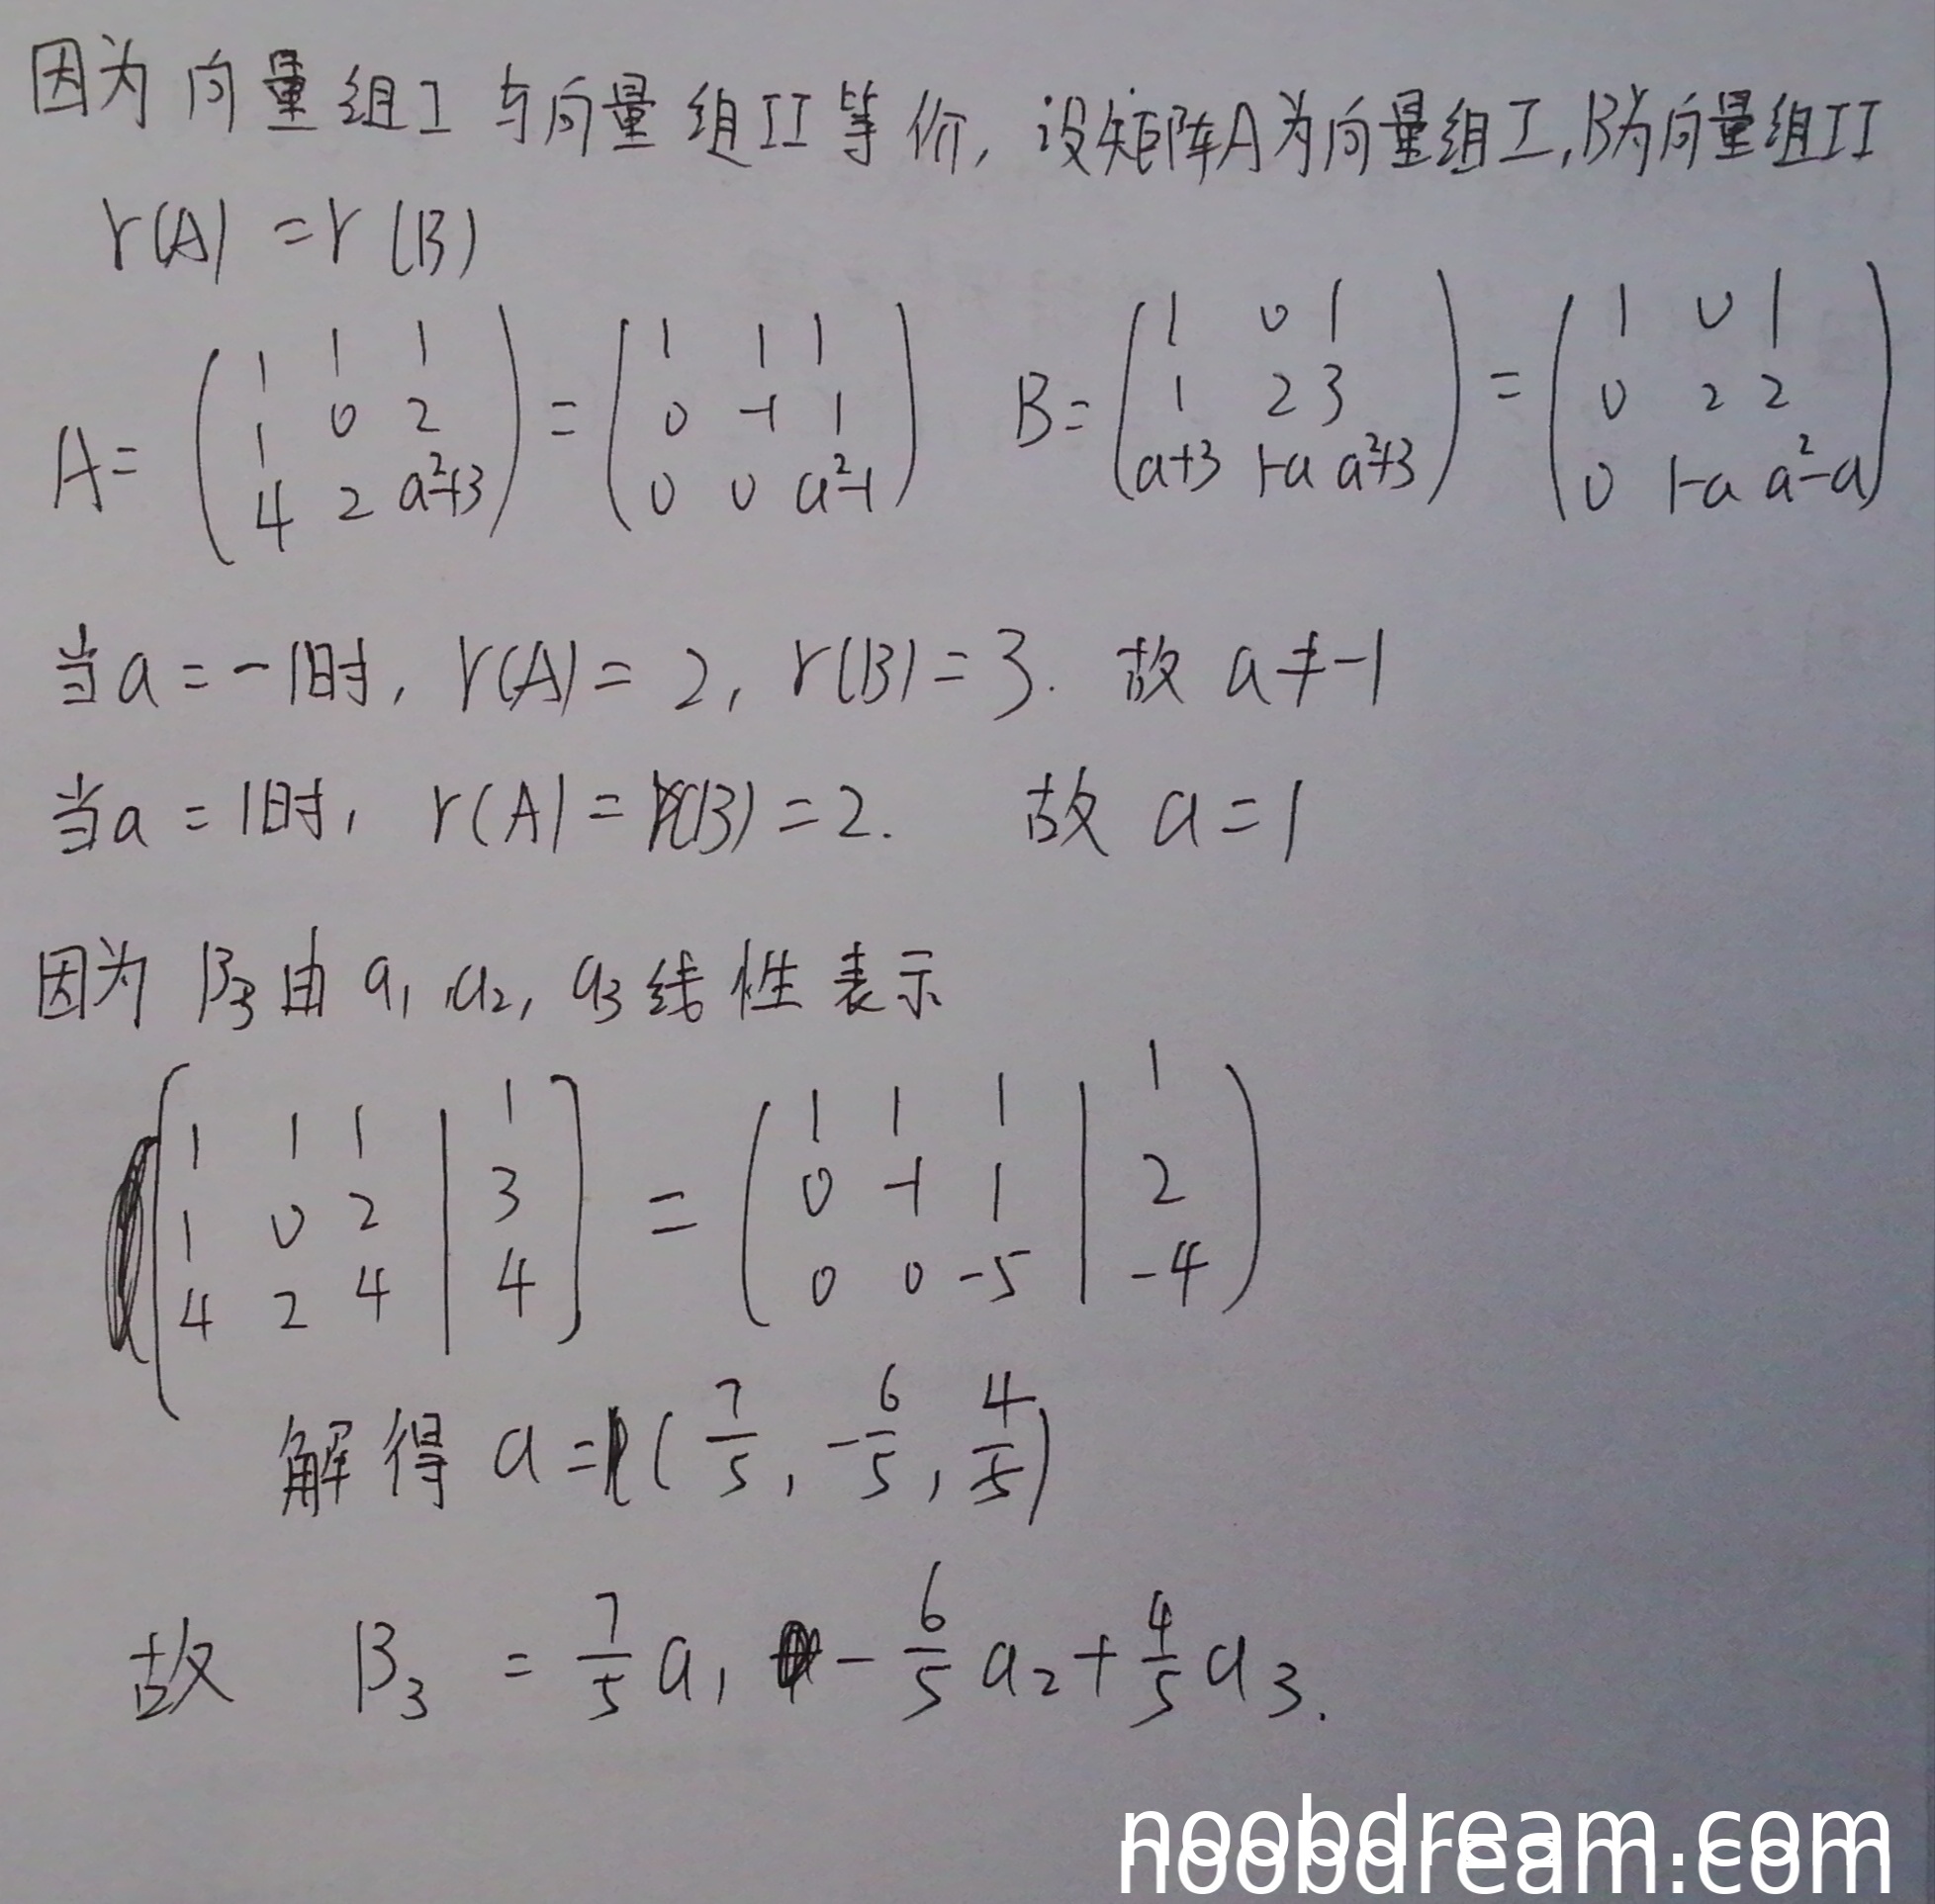 因为向量组I与向量组II等价, 设矩阵A为向量组I,B为向量组II
r(A) = r(B)
A= (1 1 1; 1 0 2; 4 2 a²+3) = (1 1 1; 0 -1 1; 0 0 a²-1) B= (1 0 1; 1 2 3; a+3 1-a a²+3) = (1 0 1; 0 2 2; 0 1-a a²-a)
当a=-1时, r(A)=2, r(B)=3. 故 a≠-1
当a=1时, r(A)=r(B)=2. 故 a=1
因为 β₃由 a₁,a₂,a₃线性表示
[1 1 1 | 1; 1 0 2 | 3; 4 2 4 | 4] = (1 1 1 | 1; 0 -1 1 | 2; 0 0 -5 | -4)
解得 a=(7/5, -6/5, 4/5)
故 β₃ = 7/5 a₁ - 6/5 a₂ + 4/5 a₃.
noobdream.com
noobdream.com